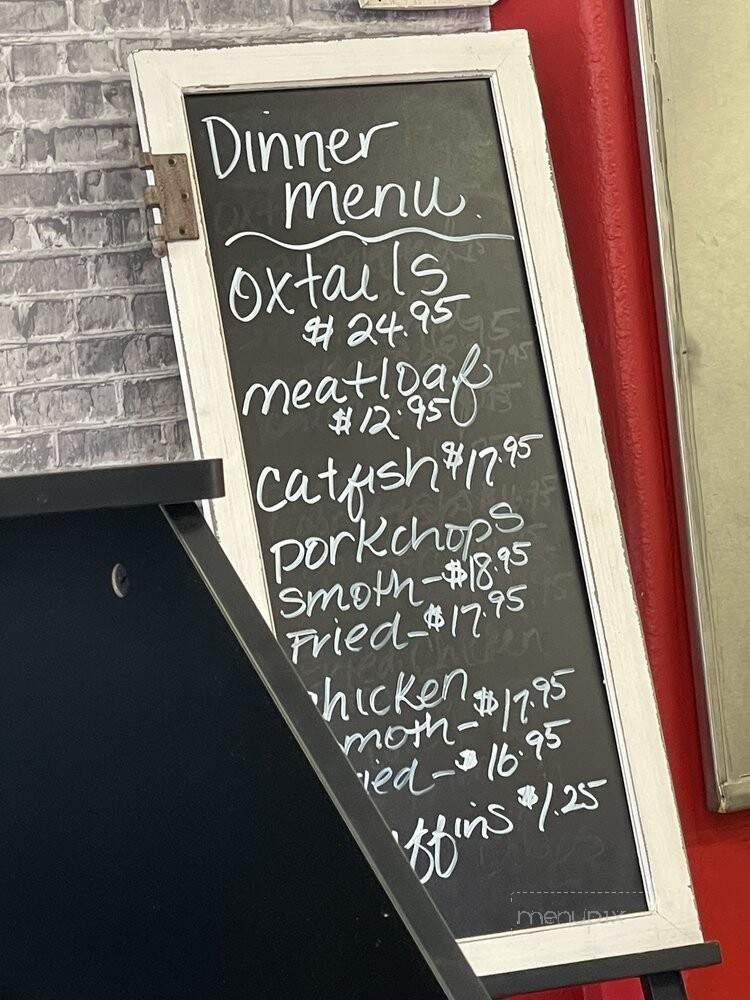 Dinner
menu.
oxtails
$24.95
meatloaf
$12.95
catfish $17.95
porkchops
smoth-$18.95
Fried-$17.95
hicken
moth-$17.95
ied-$16.95
ffins $1.25
menupix